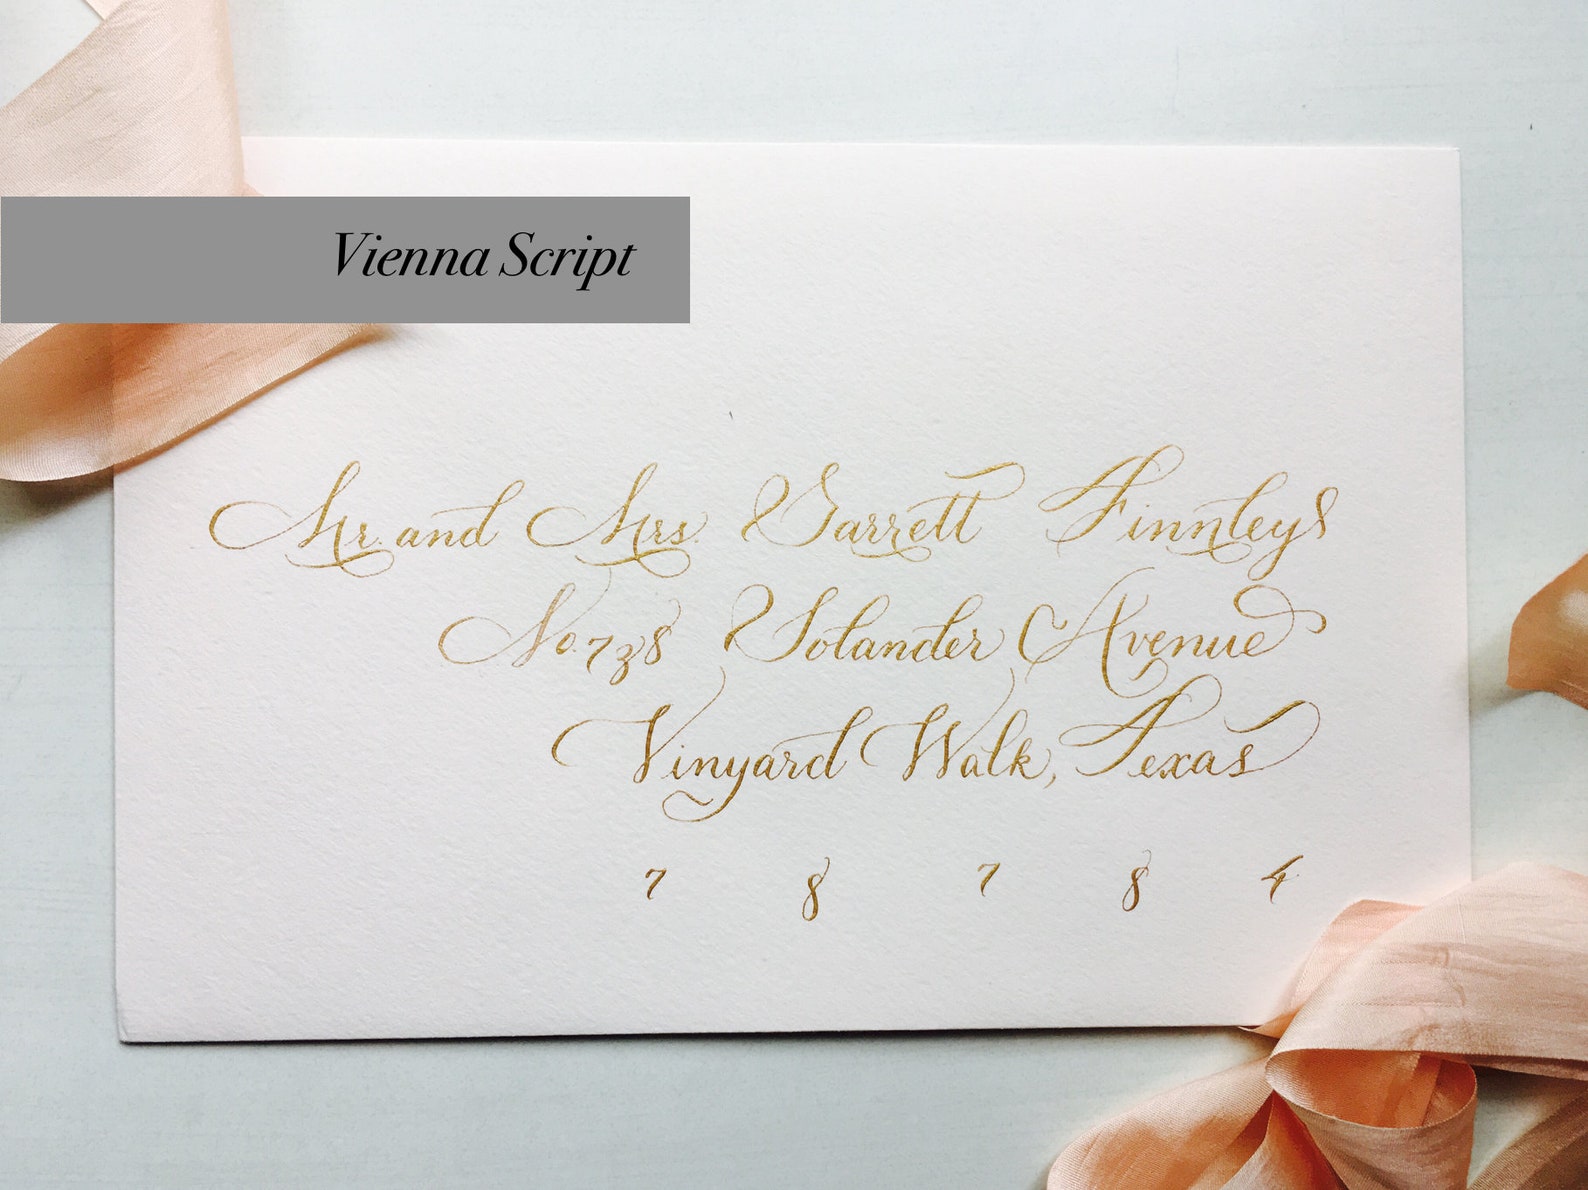 Vienna Script
Mr. and Mrs. Garrett Finnley
No. 738 Solander Avenue
Vinyard Walk, Texas
7 8 7 8 4